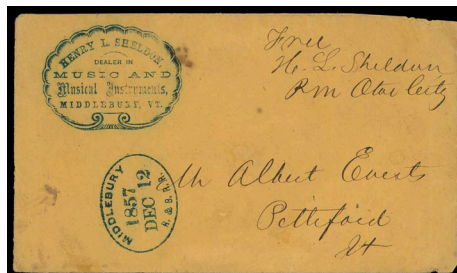 HENRY L. SHELDON,
DEALER IN
MUSIC AND
Musical Instruments,
MIDDLEBURY, VT.
Free
H. L. Sheldon
P M
MIDDLEBURY
1857
DEC 12
R. & B. R.R.
Mr Albert Everts
Pittsford
Vt